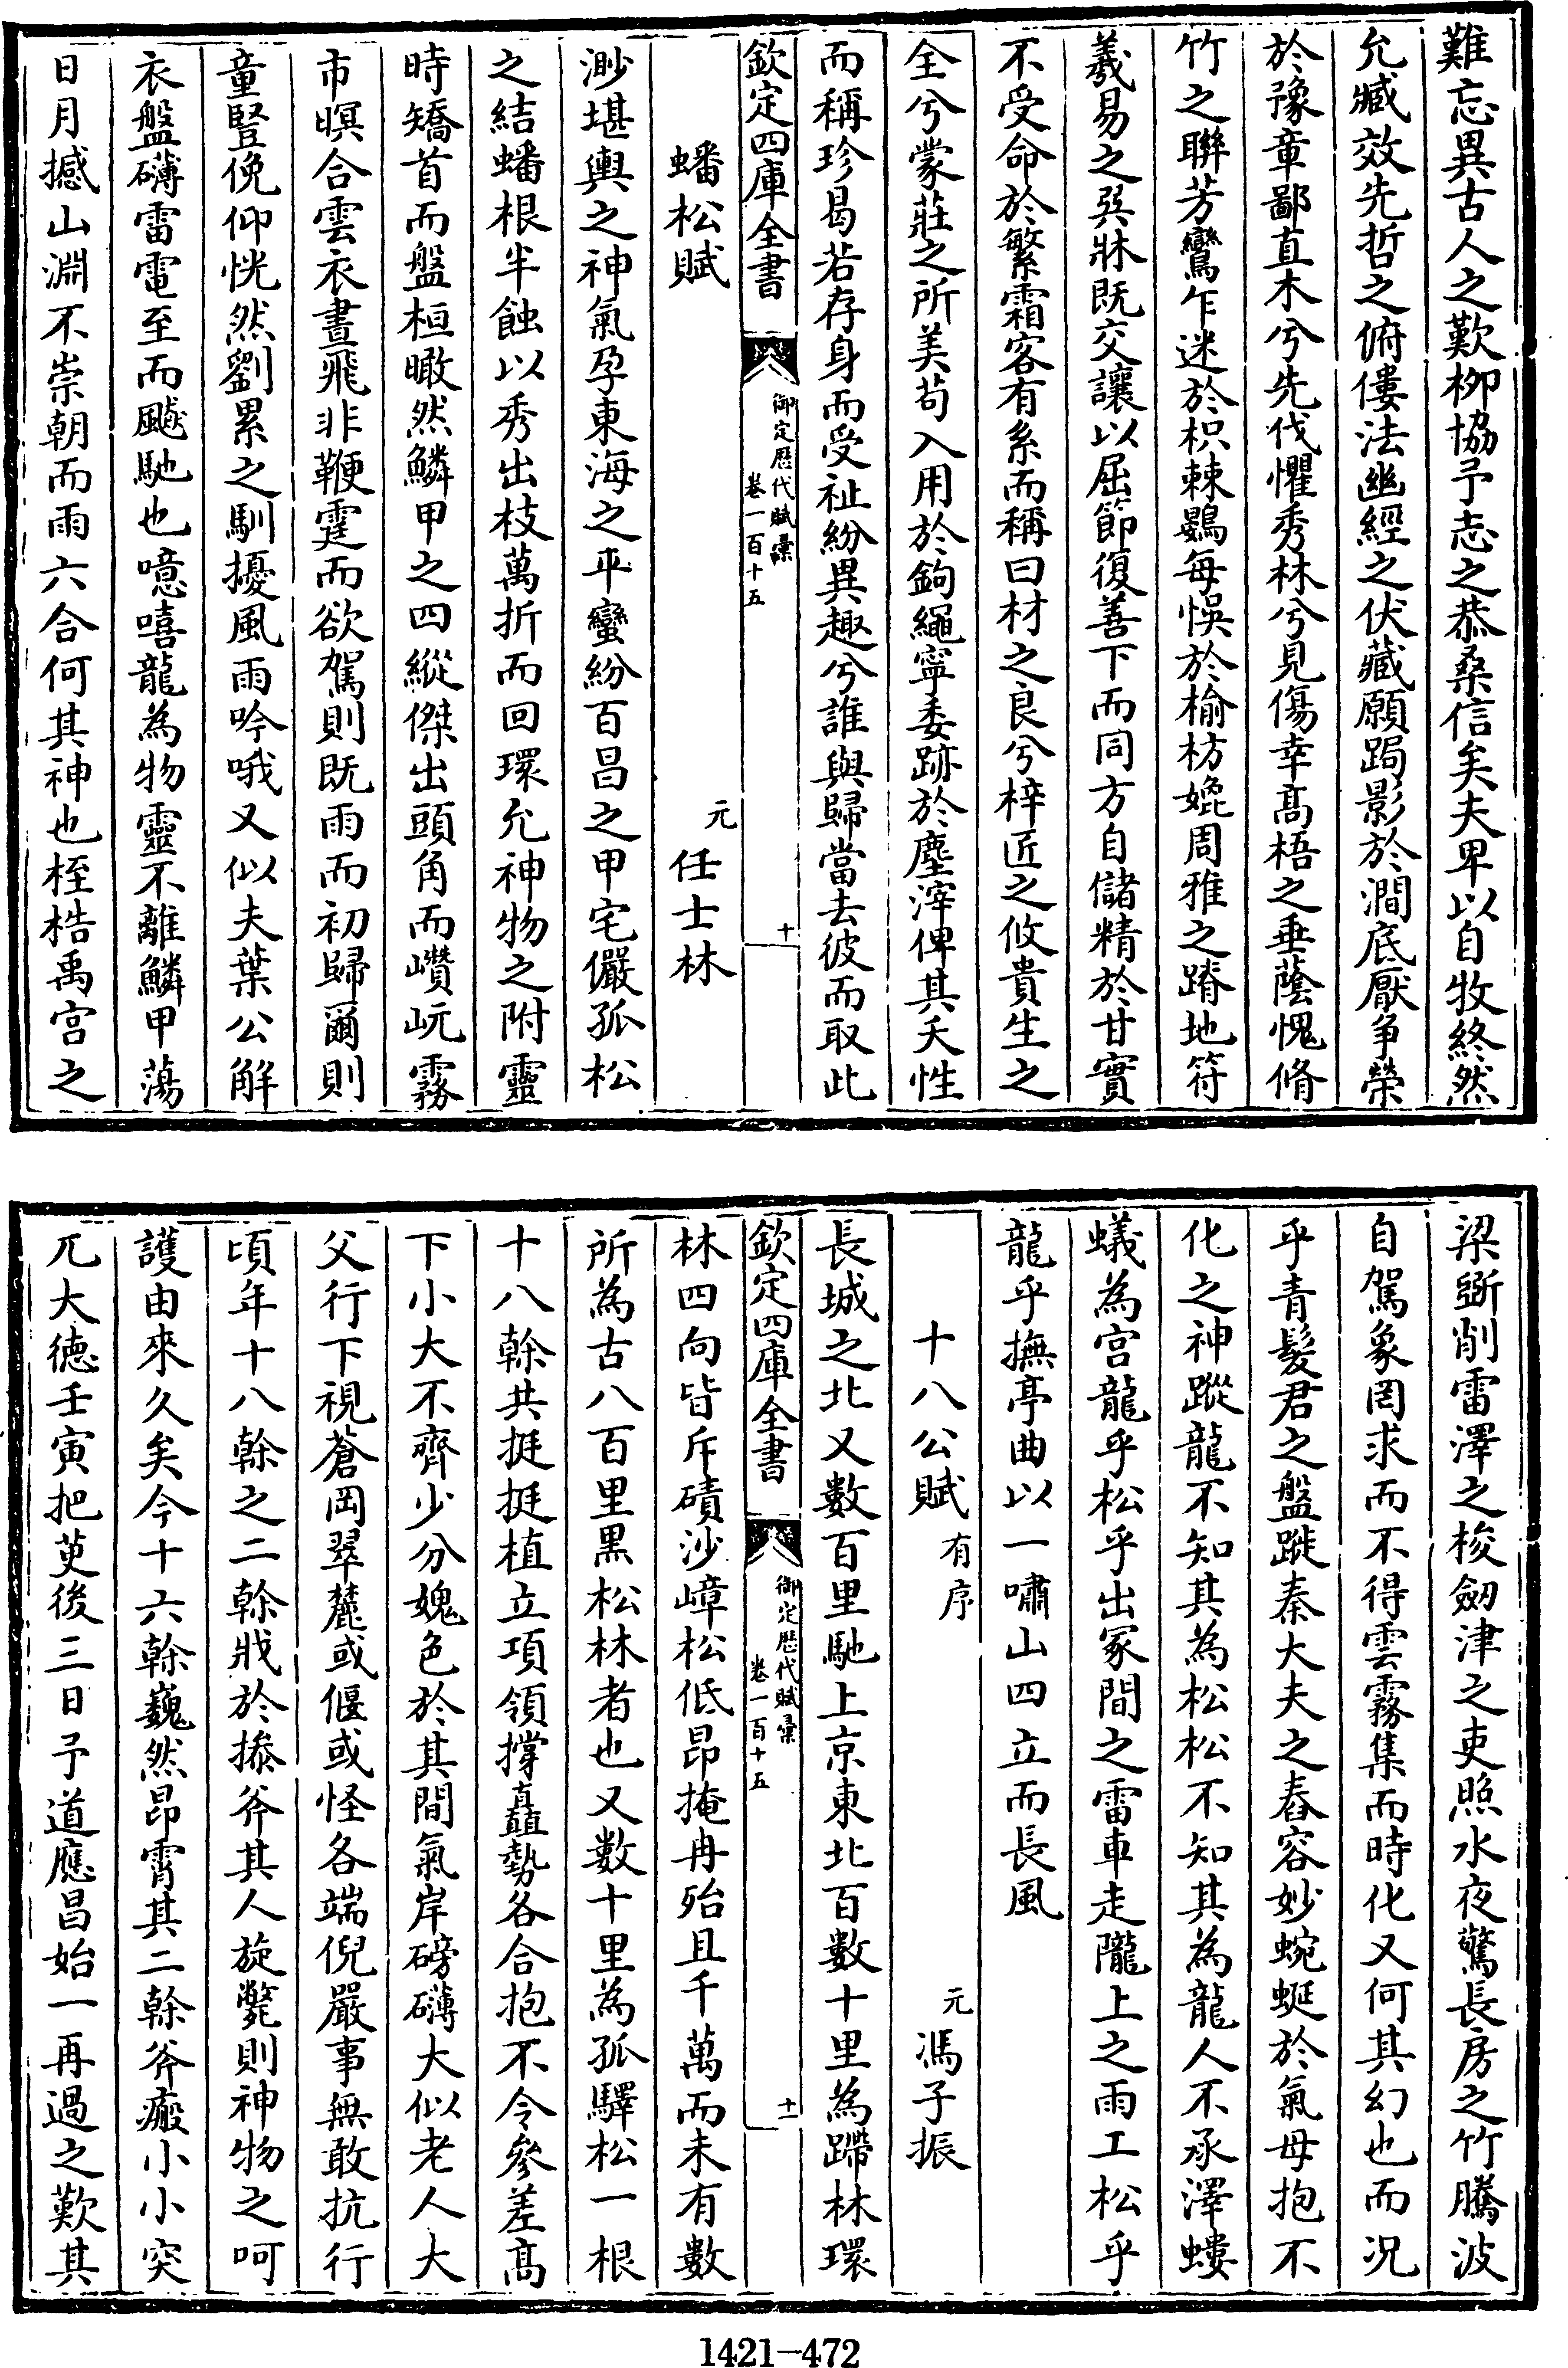 難忘異古人之歎柳協予志之恭桑信矣夫卑以自牧終然
允臧效先哲之俯僂法幽經之伏藏願跼影於澗底厭争榮
於豫章鄙直木兮先伐懼秀林兮見傷幸高梧之垂蔭愧脩
竹之聯芳鸞乍迷於枳棘鷃每悞於榆枋媲周雅之蹐地符
羲易之巽牀既交讓以屈節復善下而同方自儲精於甘實
不受命於繁霜客有系而稱曰材之良兮梓匠之攸貴生之
全兮蒙莊之所美苟入用於鉤繩寧委跡於塵滓俾其夭性
而稱珍曷若存身而受祉紛異趣兮誰與歸當去彼而取此
欽定四庫全書
御定歷代賦彙
卷一百十五
十
蟠松賦
元 任士林
渺堪輿之神氣孕東海之平蠻紛百昌之甲宅儼孤松
之結蟠根半蝕以秀出枝萬折而回環允神物之附靈
時矯首而盤桓瞰然鱗甲之四縱傑出頭角而巑岏霧
市暝合雲衣晝飛非鞭霆而欲駕則既雨而初歸爾則
童豎俛仰恍然劉累之馴擾風雨吟哦又似夫葉公解
衣盤礴雷電至而飇馳也噫嘻龍為物靈不離鱗甲蕩
日月撼山淵不崇朝而雨六合何其神也桎梏禹宫之
梁斲削雷澤之梭劒津之吏照水夜驚長房之竹騰波
自駕象罔求而不得雲霧集而時化又何其幻也而况
乎青髮君之盤蹤秦大夫之舂容妙蜿蜒於氣母抱不
化之神蹤龍不知其為松松不知其為龍人不承澤螻
蟻為宫龍乎松乎出冢間之雷車走隴上之雨工松乎
龍乎撫亭曲以一嘯山四立而長風
十八公賦 有序
元 馮子振
長城之北又數百里馳上京東北百數十里為蹛林環
欽定四庫全書
御定歷代賦彙
卷一百十五
十一
林四向皆斥磧沙嶂松低昂掩冉殆且千萬而未有數
所為古八百里黑松林者也又數十里為孤驛松一根
十八榦共挺挺植立項領撐矗勢各合抱不令參差高
下小大不齊少分媿色於其間氣岸磅礴大似老人大
父行下視蒼岡翠麓或偃或怪各端倪嚴事無敢抗行
頃年十八榦之二榦戕於摻斧其人旋斃則神物之呵
護由來久矣今十六榦巍然昂霄其二榦斧瘢小小突
兀大徳壬寅把萸後三日予道應昌始一再過之歎其
1421—472